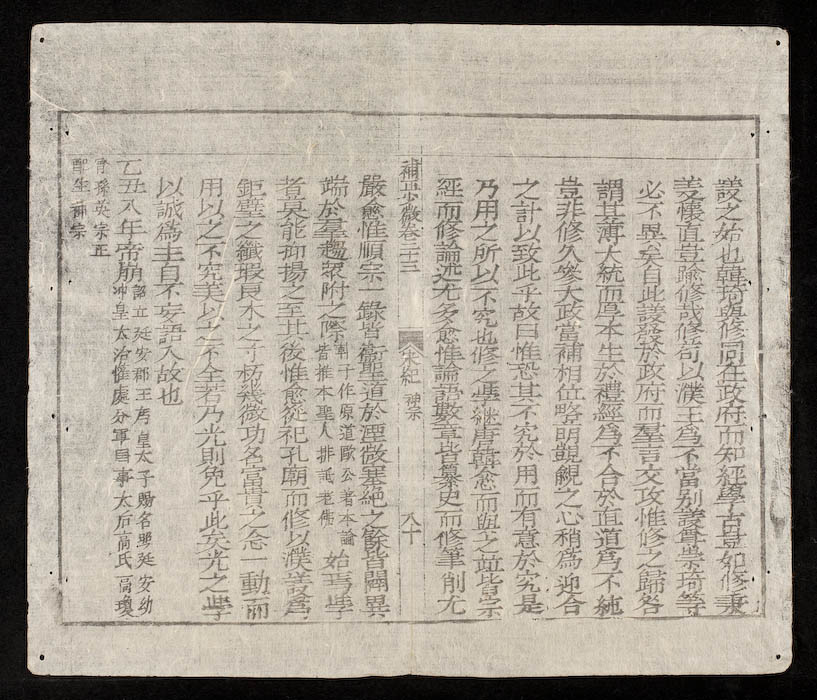 議之始也韓琦與修同在政府而知經學古豈如修秉
義懷直豈踰修哉修苟以濮王爲不當別議尊崇琦等
必不異矣自此議發於政府而羣言交攻惟修之歸咎
謂其薄大統而厚本生於禮經爲不合於直道爲不純
豈非修久參大政當補相位略明覬覦之心稍爲迎合
之計以致此乎故曰惟恐其不究於用而有意於究是
乃用之所以不究也修之學繼唐韓愈而與之竝皆宗
經而修論述尤多愈惟論語數章皆纂史而修筆削尤
補正少微卷二十三 宋紀 神宗 八十
嚴愈惟順宗一錄皆衞聖道於湮微塞絶之餘皆闢異
端於羣趨衆附之際韓子作原道歐公著本論皆推本聖人排詆老佛始焉學
者莫能抑揚之至其後惟愈從祀孔廟而修以濮議爲
鉅璧之纖瑕良木之寸朽幾微功名富貴之念一動而
用以之不究美以之不全若乃光則免乎此矣光之學
以誠爲主自不妄語入故也
乙丑八年帝崩詔立延安郡王傭皇太子賜名煦延安幼冲皇太后權處分軍國事太后高氏高瓊
曾孫英宗正
配生神宗